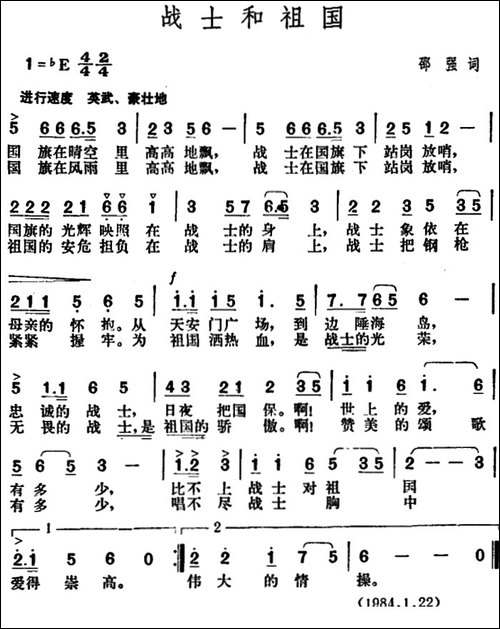 战士和祖国
1=♭E 4/4 2/4
邵强词
进行速度 英武、豪壮地
5 666.5 3 | 23 56 - | 5 666.5 3 | 25 12 - |
国 旗在晴空 里 高高 地飘, 战 士在国旗 下 站岗 放哨,
国 旗在风雨 里 高高 地飘, 战 士在国旗 下 站岗 放哨,
222 21 66 1 | 3 57 6.5 3 | 2 2 3 35 |
国旗的 光辉 映照 在 战 士的 身 上, 战 士 象 依在
祖国的 安危 担负 在 战 士的 肩 上, 战 士 把 钢枪
211 5 6 5 | 1.1 15 1. 5 | 7. 765 6 - |
母亲的 怀 抱。从 天安 门广 场, 到 边 陲海 岛,
紧紧 握 牢。为 祖国 洒热 血, 是 战士的光 荣,
5 1.1 6 5 | 43 21 2 35 | 1 1 61. 6 |
忠 诚的 战 士, 日夜 把国 保。啊! 世 上 的 爱,
无 畏的 战 士,是 祖国的 骄 傲。啊! 赞 美 的 颂 歌
5 6 5 3 - | 1.2 3 | 1 1 65 35 | 2 - - 3 |
有 多 少, 比不 上 战 士 对 祖 国
有 多 少, 唱不 尽 战 士 胸 中
1 2
2.1 5 6 0 :| 2 2 175 | 6 - - 0 |
爱得 崇 高。 伟 大 的 情 操。
(1984.1.22)